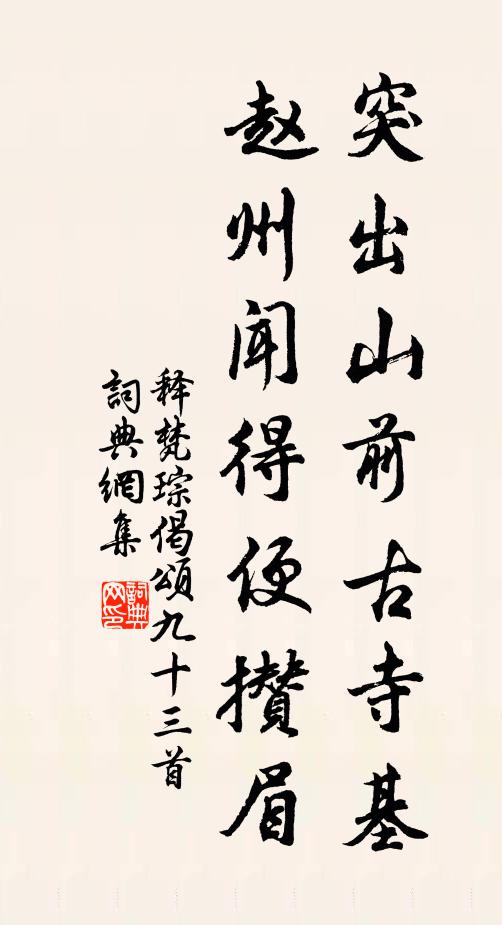 突出山前古寺基
赵州闻得便攅眉
释梵琮偈頌九十三首
詞典網集
詞典网印